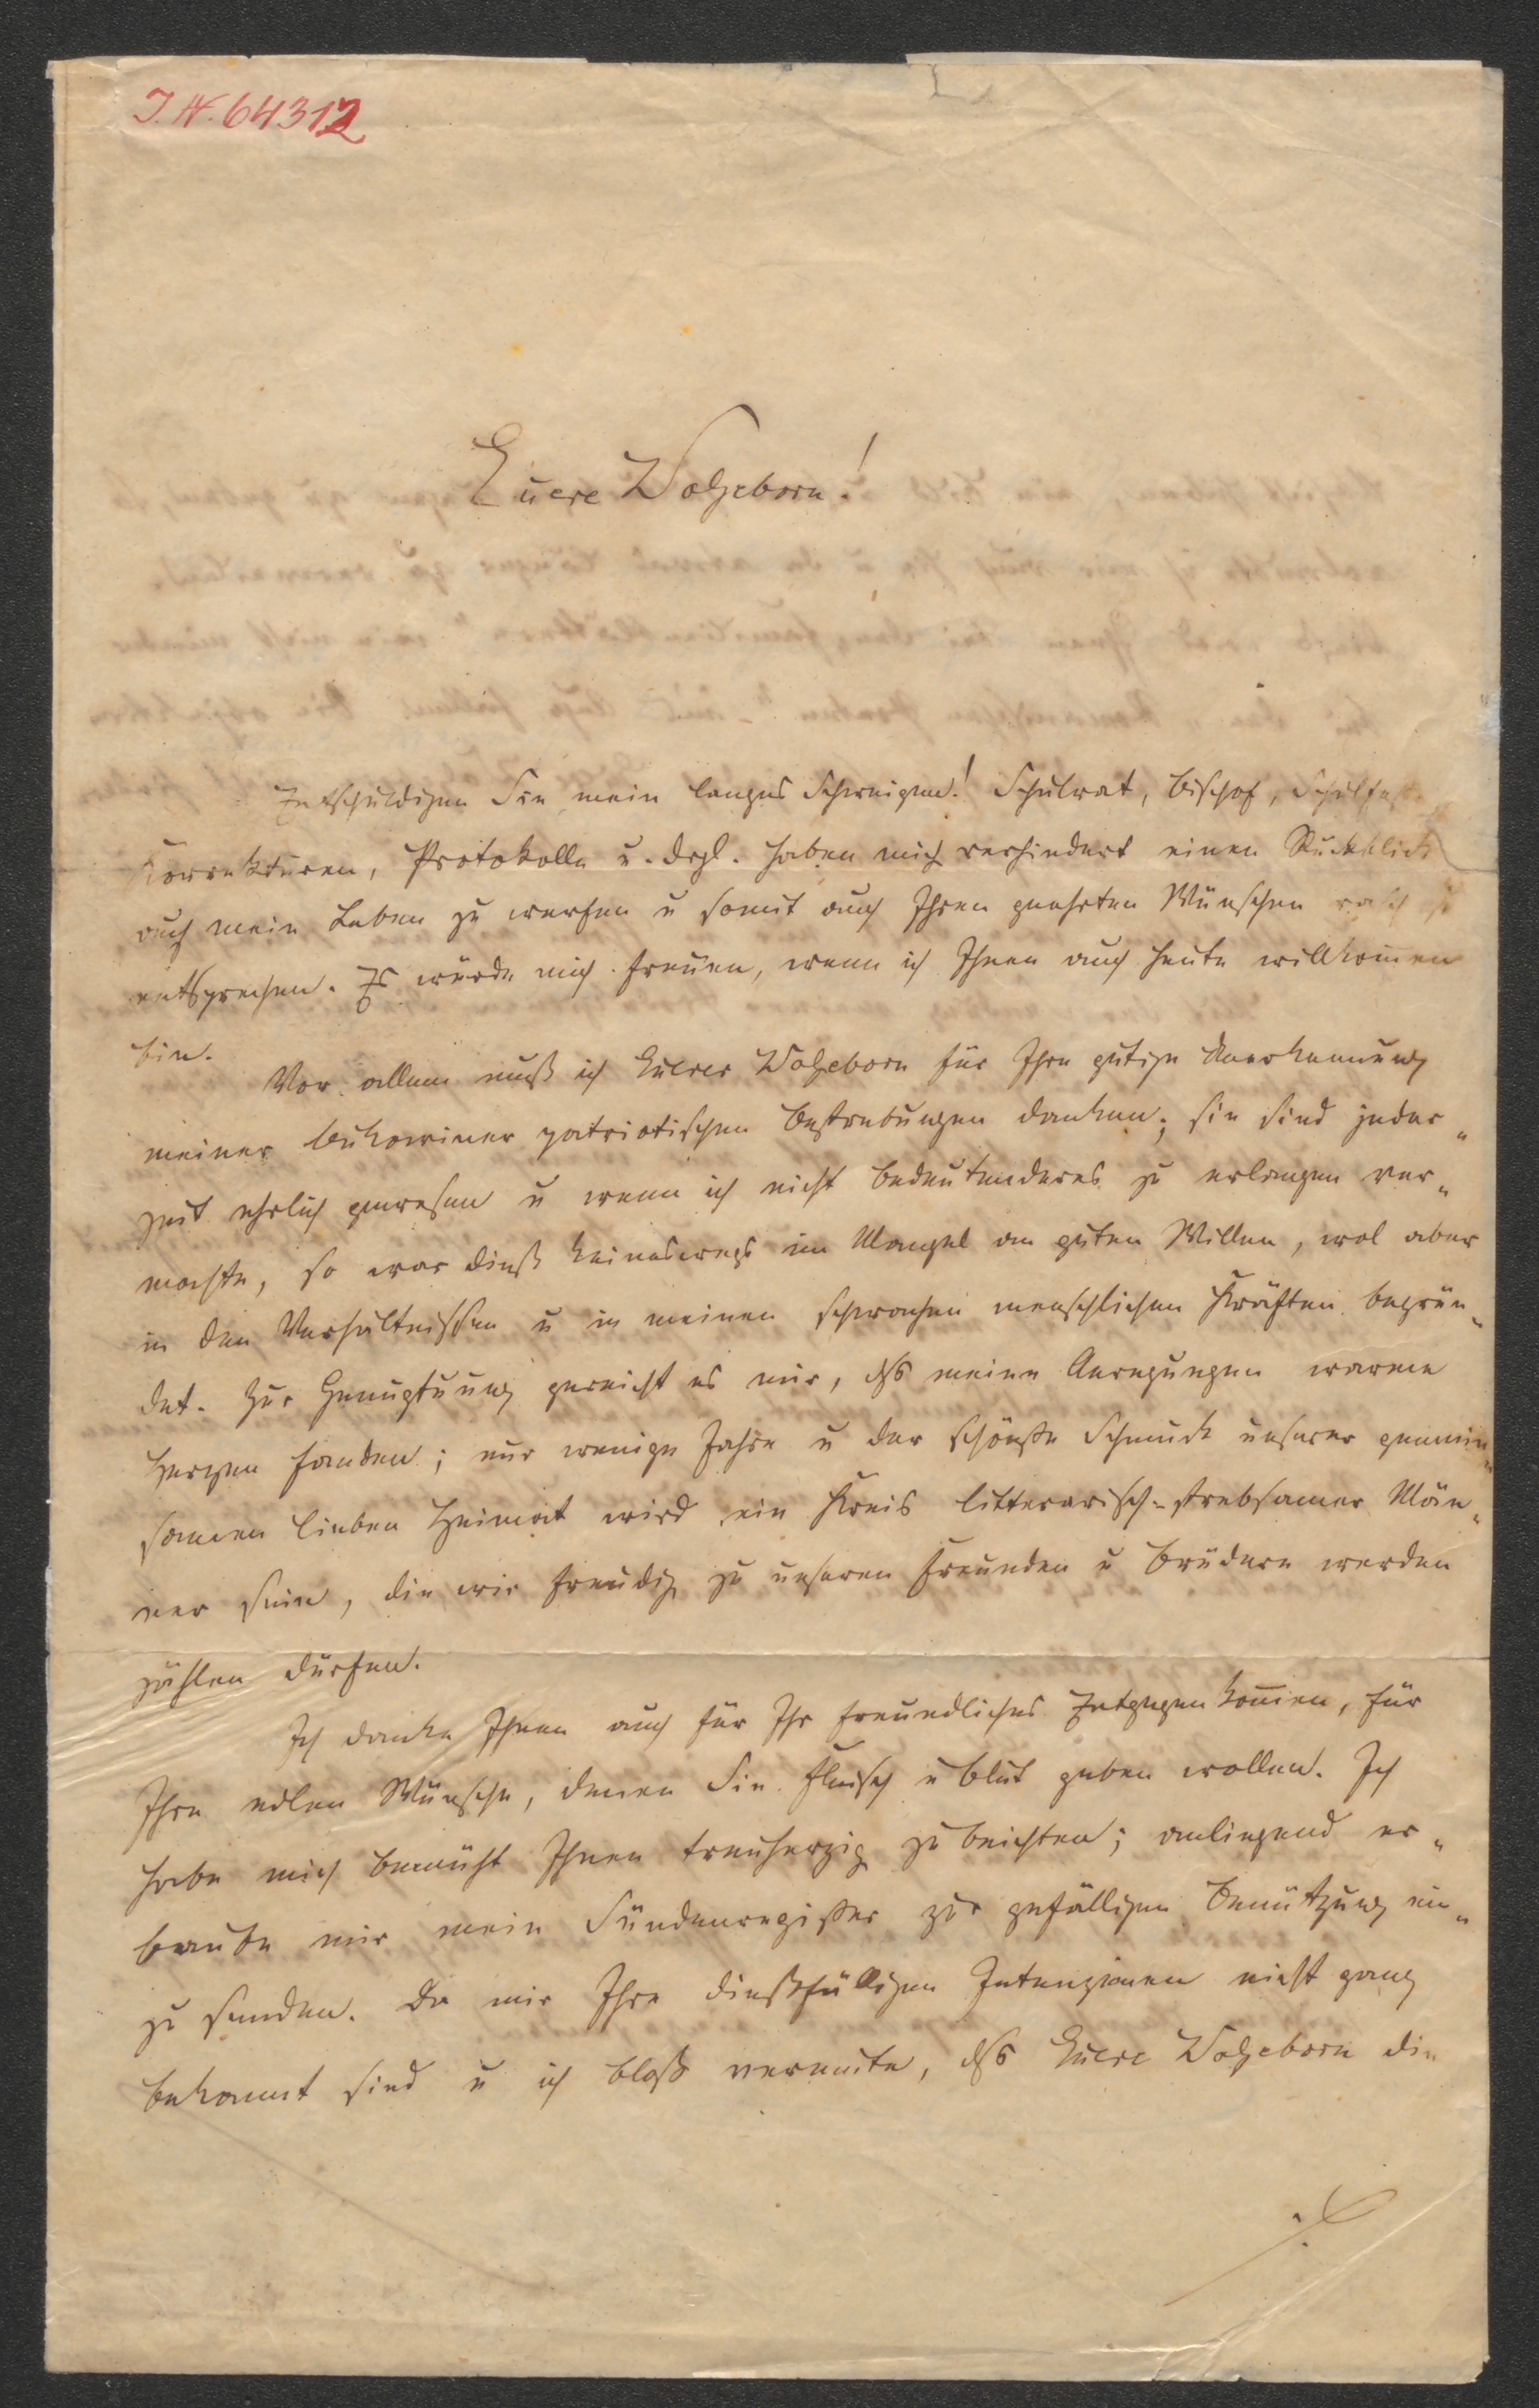 J. N. 64312
Euere Wolgeborn!
Entschuldigen Sie mein langes Schweigen! Schulrat, Bischof,
Korrekturen, Protokolle u. drgl. haben mich verhindert einen Rückblick
auf mein Leben zu werfen u somit auch Ihren geehrten Wünschen rasch zu
entsprechen. Es würde mich freuen, wenn ich Ihnen auch heute willkom̅en
bin.
Vor allem muß ich Euerer Wolgeborn für Ihre gütige Anerkennung
meiner bukowiner patriotischen Bestrebungen danken; sie sind jeder„
zeit ehrlich gewesen u wenn ich nicht bedeutenderes zu erlangen ver„
mochte, so war dieß keineswegs im Mangel an guten Willen, wol aber
in den Verhältnissen u in meinen schwachen menschlichen Kräften begrün„
det. Zur Genugtuung gereicht es mir, dß meine Anregungen warme
Herzen fanden; nur wenige Jahre u der schönste Schmuck unserer gemein„
samen lieben Heimat wird ein Kreis litterarisch-strebsamer Män„
ner sein, die wir freudig zu unseren Freunden u Brüdern werden
zählen dürfen.
Ich danke Ihnen auch für Ihr freundliches Entgegenkom̅en, für
Ihre edlen Wünsche, denen Sie Fleisch u Blut geben wollen. Ich
habe mich bemüht Ihnen treuherzig zu beichten; anliegend er„
laube mir mein Sündenregister zur gefälligen Benützung ein„
zu senden. Da mir Ihre dießfälligen Intenzionen nicht ganz
bekannt sind u ich bloß vermute, dß Euere Wolgeborn die
./.